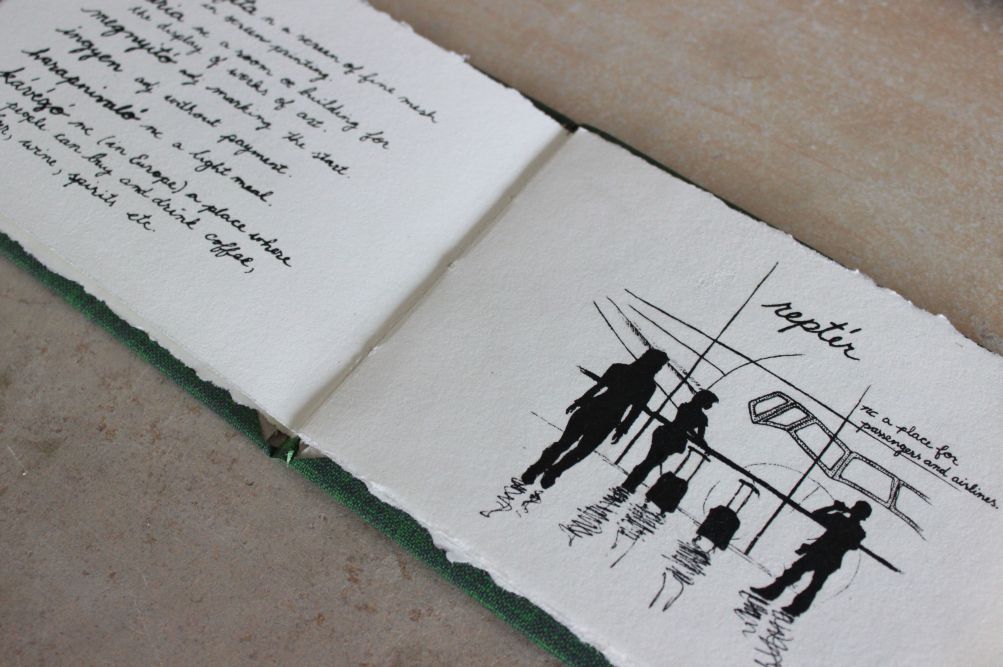 n a screen of fine mesh
in screen printing.
nc a room or building for
the display of works of art.
megnyitó adj marking the start.
ingyen adj without payment.
harapnivaló nc a light meal.
kávézó nc (in Europe) a place where
people can buy and drink coffee,
wine, spirits etc.
reptér
nc a place for
passengers and airlines.